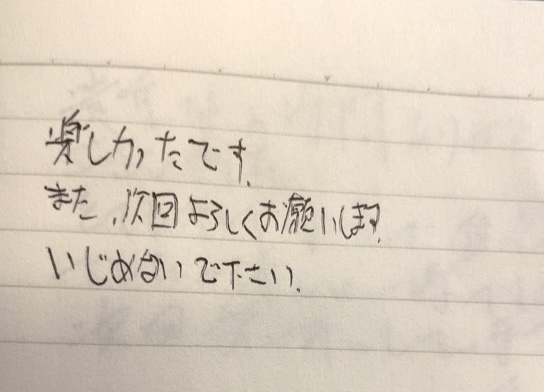 楽しかったです.
また、次回よろしくお願いします.
いじめないで下さい.